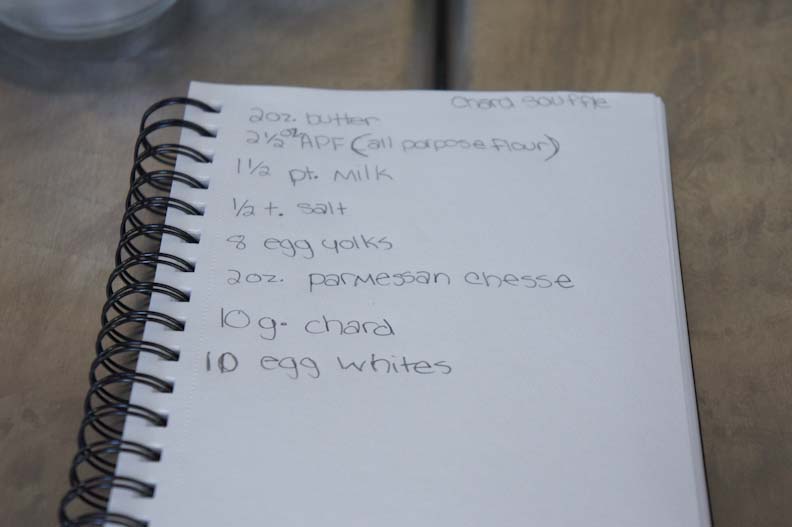 Chard Souffle
2oz. butter
2 1/2 oz APF (all porpose flour)
1 1/2 pt. Milk
1/2 t. salt
8 egg yolks
2oz. parmessan chesse
10 g. chard
10 egg whites